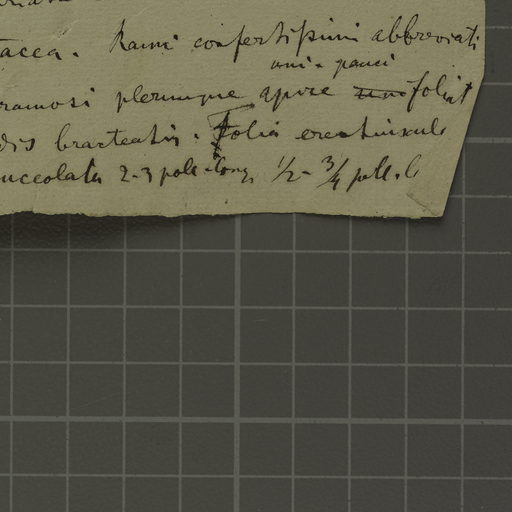 tacca. Rami confertissimi abbreviati
uni - pauci
ramosi plerumque apice unifoliat
dis bracteatis. Folia erectiuscule
nceolata 2-3 poll. long. 1/2 - 3/4 poll. l